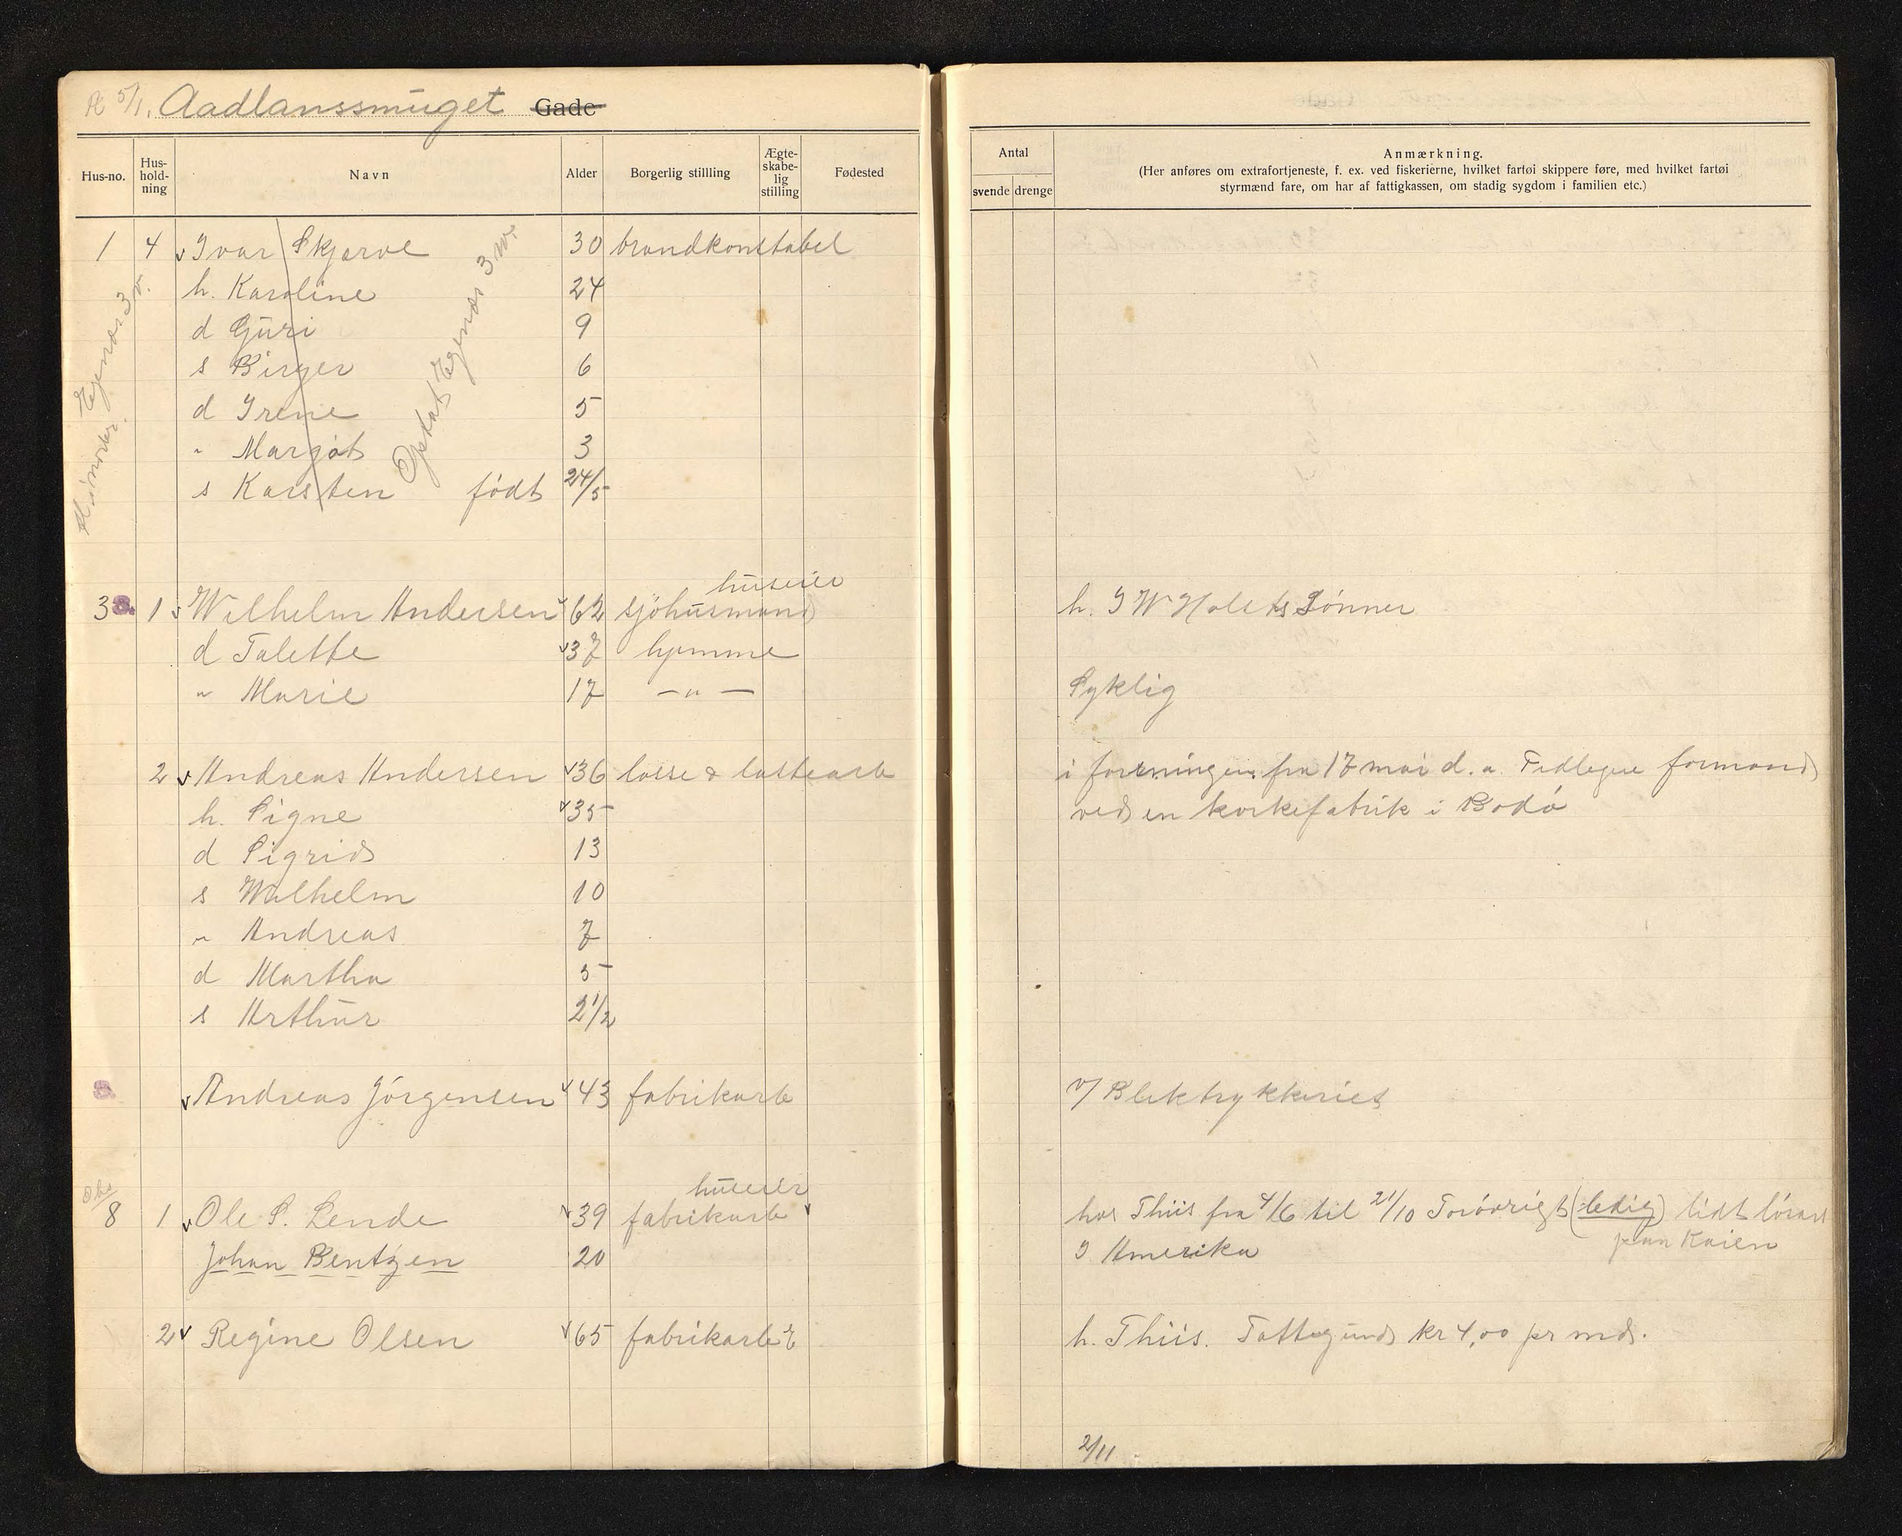 5/1. Aadlanssmuget Gade
Hus-no. Hus-hold-ning Navn Alder Borgerlig stillling Ægte-skabe-lig stilling Fødested
Antal
svende drenge
Anmærkning.
(Her anføres om extrafortjeneste, f. ex. ved fiskerierne, hvilket fartøi skippere føre, med hvilket fartøi
styrmænd fare, om har af fattigkassen, om stadig sygdom i familien etc.)
1 4 Ivar Skjerve 30 brandkonstabel
h. Karoline 24
d Guri 9
s Birger 6
d Irene 5
" Margot 3
s Karsten født 24/5
Egenæs 3 v.
Opsat Egenæs 3 v.
huseier
3 1 Wilhelm Andersen 62 sjøhusmand h. I W Holst Sønner
d Talette 37 hjemme
" Marie 17 — " — Syklig
2 Andreas Andersen 36 losse & lastearb i forretningen fra 17 mai d. a. Tidligere formand
h. Signe 35 ved en korkefabrik i Bodø
d Sigrid 13
s Wilhelm 10
" Andreas 7
d Martha 5
s Arthur 2 1/2
Andreas Jørgensen 43 fabrikarb v/ Bliktrykkeriet
Obs huseier
8 1 Ole S. Lende 39 fabrikarb hos Thiis fra 4/6 til 21/10 Forøvrigt (ledig) lidt
paa Kaien
Johan Bentzen 20 I Amerika
2 Regine Olsen 65 fabrikarb h. Thiis. kr 4,00 pr md.
2/11